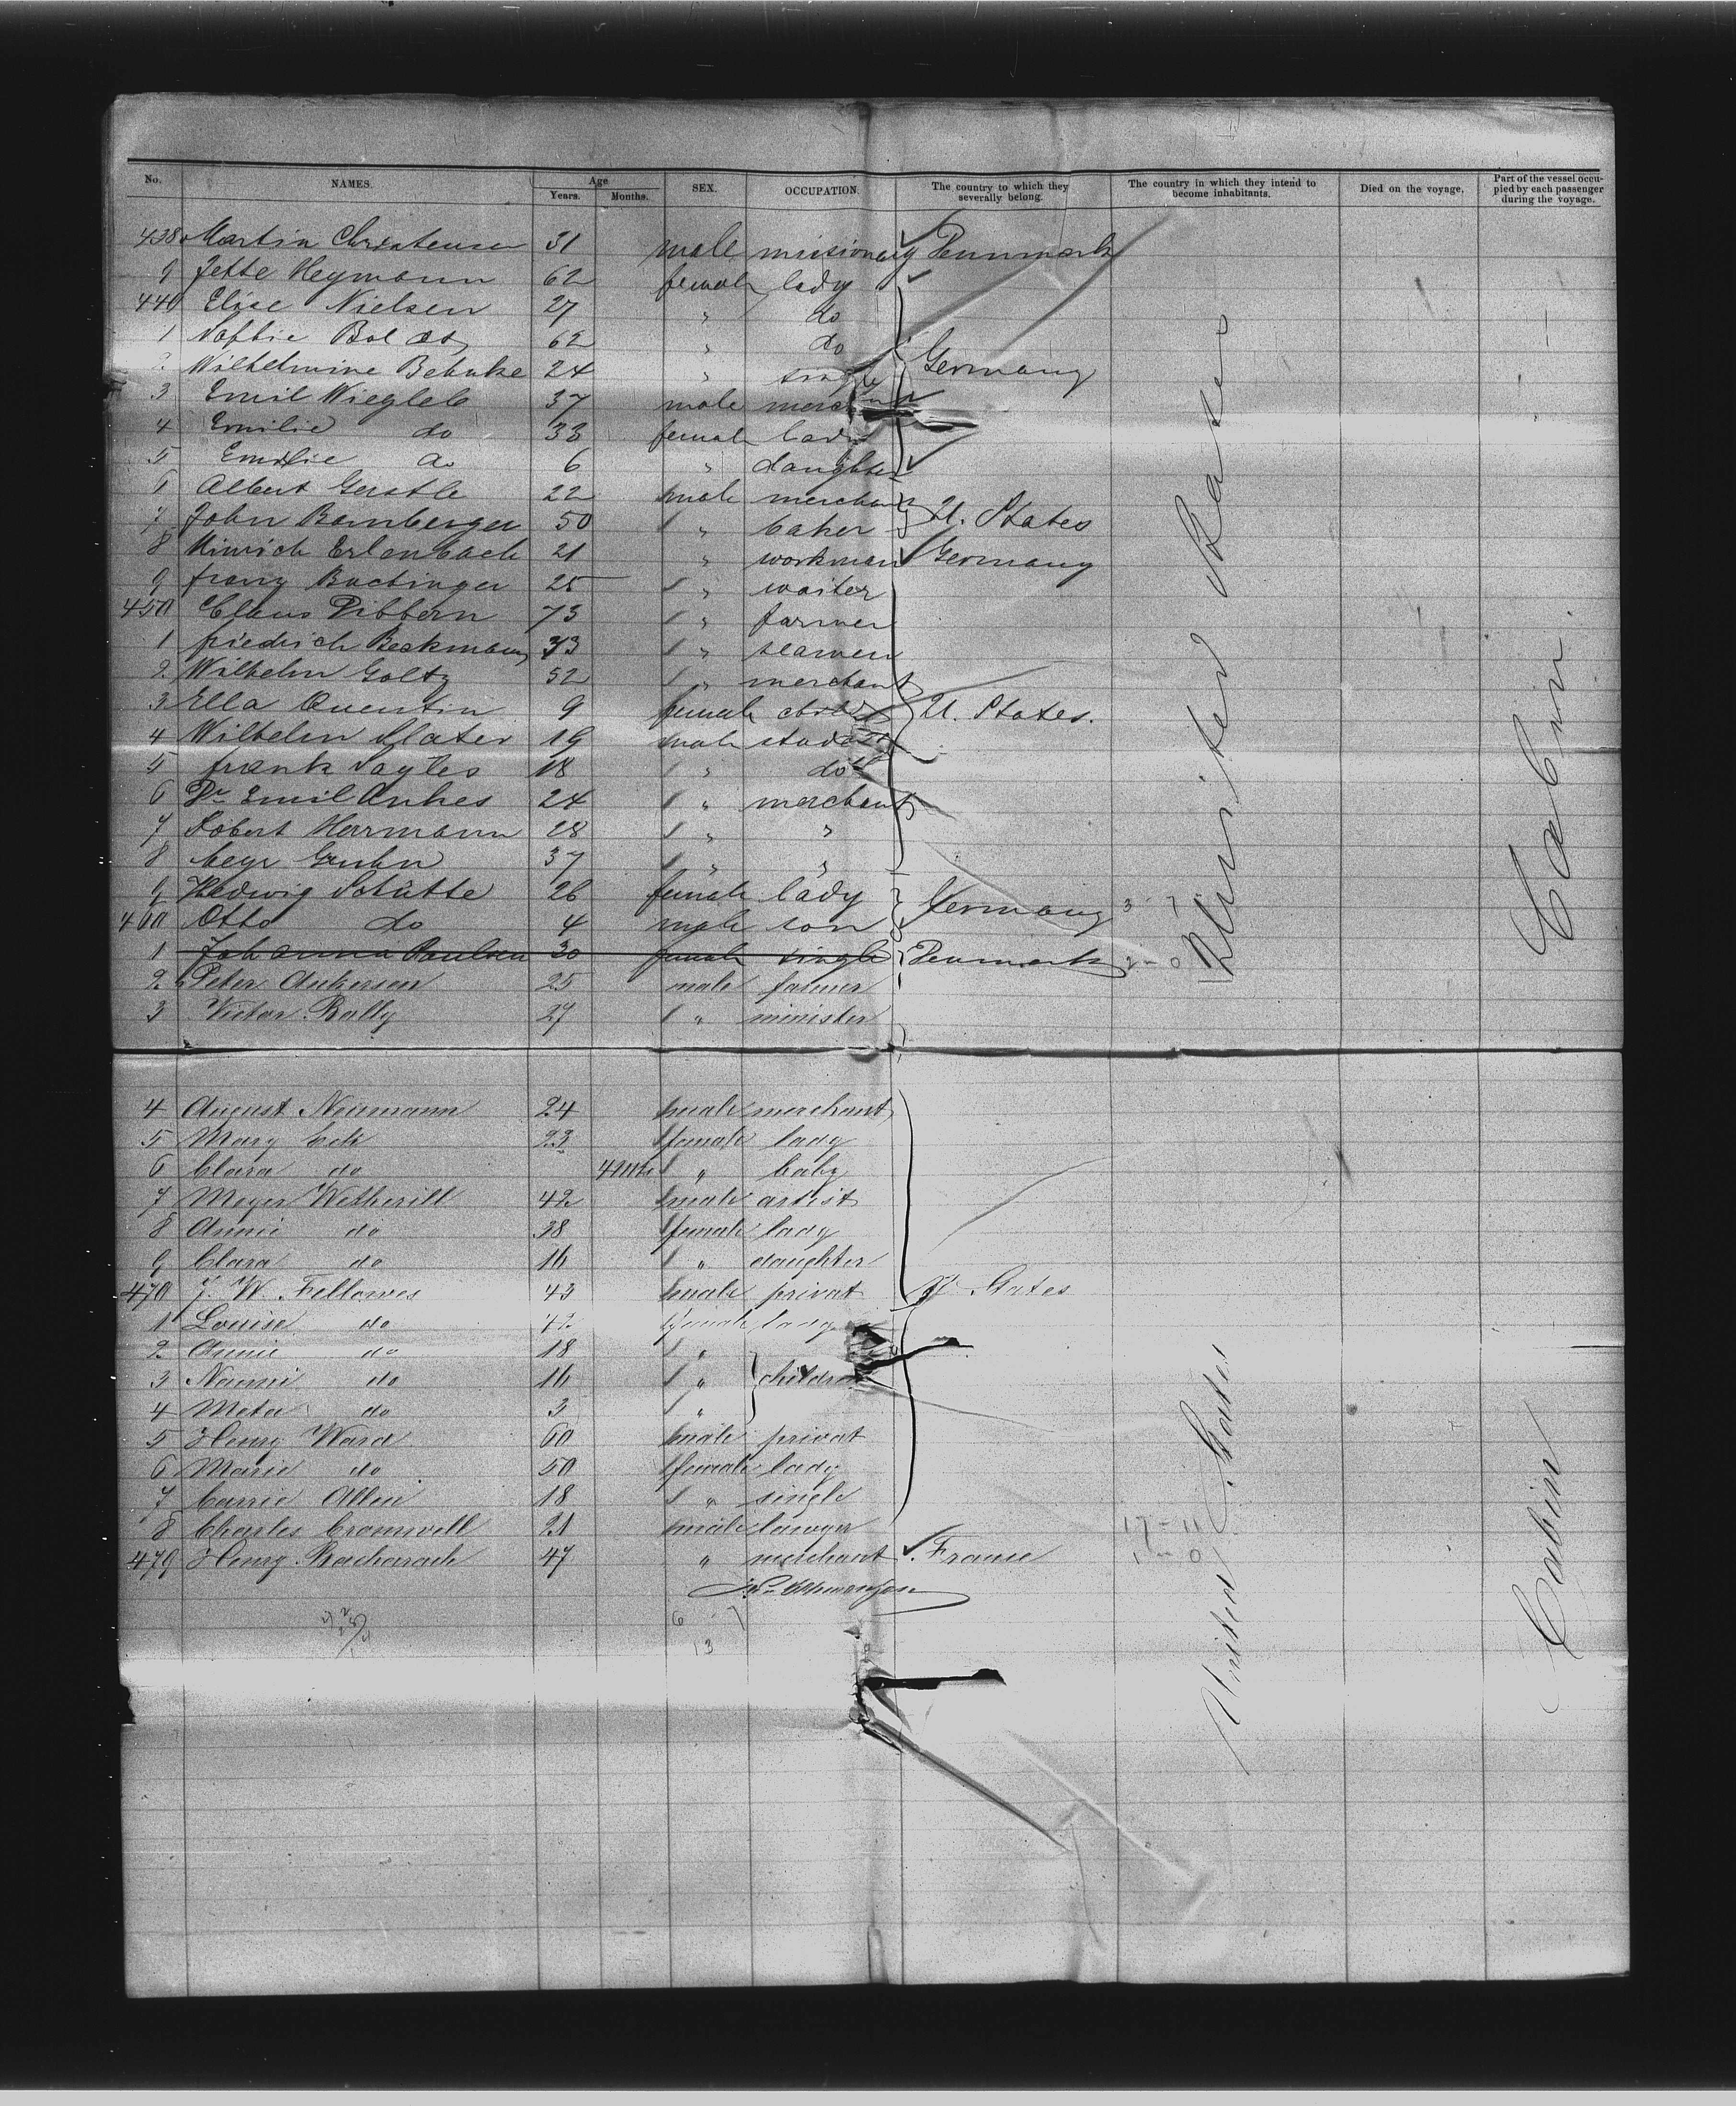 No. NAMES. Age Years. Months. SEX. OCCUPATION. The country to which they severally belong. The country in which they intend to become inhabitants. Died on the voyage. Part of the vessel occupied by each passenger during the voyage.
438 Martin Christensen 31 male missionary Dennmark
9 Jette Heymann 62 female lady
440 Elise Nielsen 27 " do
1 62 " do
2 Wilhelmine Behnke 24 " single Germany
3 Emil Wiegleb 37 male merchant
4 Emilie do 33 female lady
5 Emilie do 6 " daughter
6 Albert Gerstle 22 male merchant
7 John Bamberger 50 " baker U. States
8 Hinrich Erlenbach 21 " workman Germany
9 franz Bactinger 25 " waiter
450 Claus Dibbern 73 " farmer
1 friedrich Beckmann 33 " seamen
2 Wilhelm Goltz 52 " merchant
3 Ella Quentin 9 female child U. States.
4 Wilhelm Slater 19 male student
5 frank Sayles 18 " do
6 Dr Emil Ankes 24 " merchant
7 Robert Harmann 28 " "
8 Gruhn 37 " "
9 Hedwig Schütte 26 female lady Germany 3 - 7
460 Otto do 4 male son
1 Johanna Paulsen 30 female single Denmark 2 - 0
2 Peter Ankersen 25 male farmer
3 Victor Bally 27 " minister
United States
Cabin
4 August Neumann 24 male merchant
5 Mary Eck 23 female lady
6 Clara do 4 mths " baby
7 Meyer Wetherill 42 male artist
8 Annie do 38 female lady
9 Clara do 16 " daughter
470 J. W. Fellowes 43 male privat U. States
1 Louise do 42 female lady
2 Annie do 18 "
3 Naomi do 16 " children
4 Meta do 3 "
5 Henry Ward 60 male privat
6 Marie do 50 female lady
7 Carrie Allen 18 " single
8 Charles Cromwell 21 male lawyer 17 - 11
479 Henry Bacharach 47 " merchant France 1 - 0
United States
Cabin
6 7
13